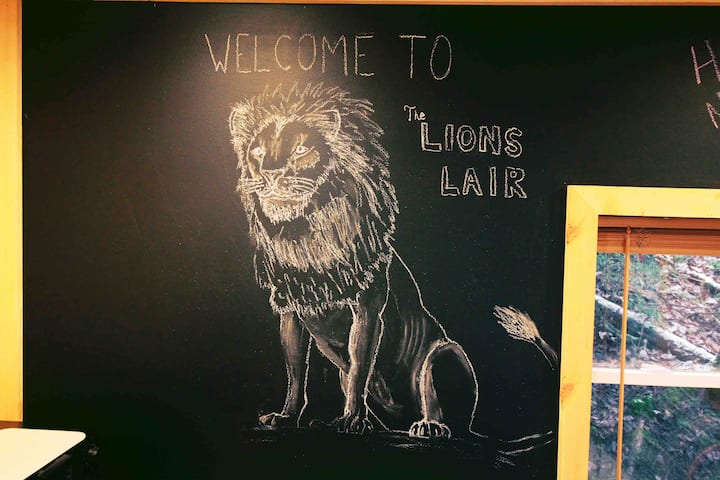 WELCOME TO
The
LIONS
LAIR